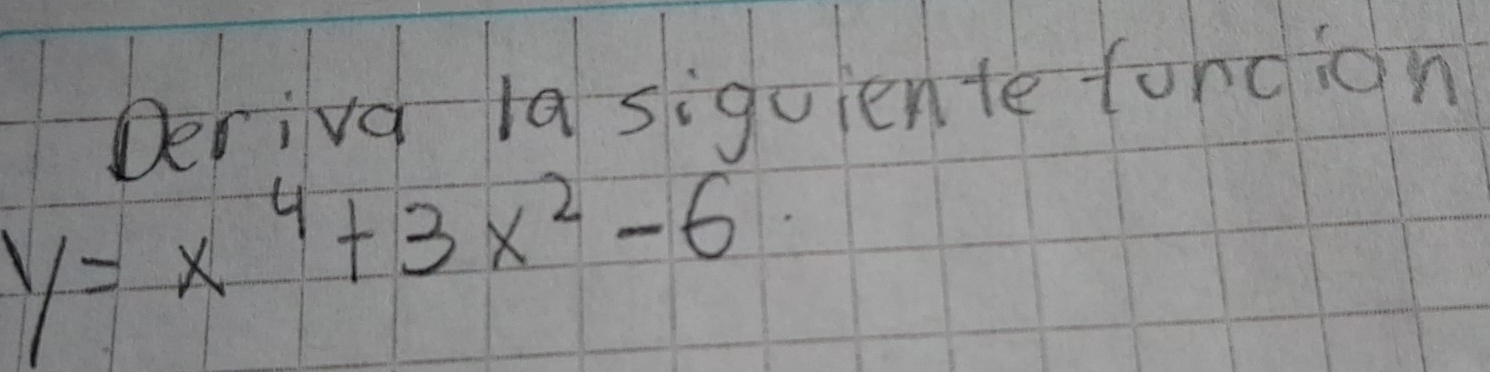 Deriva la siguiente funcion
y = x⁴ + 3x² - 6.